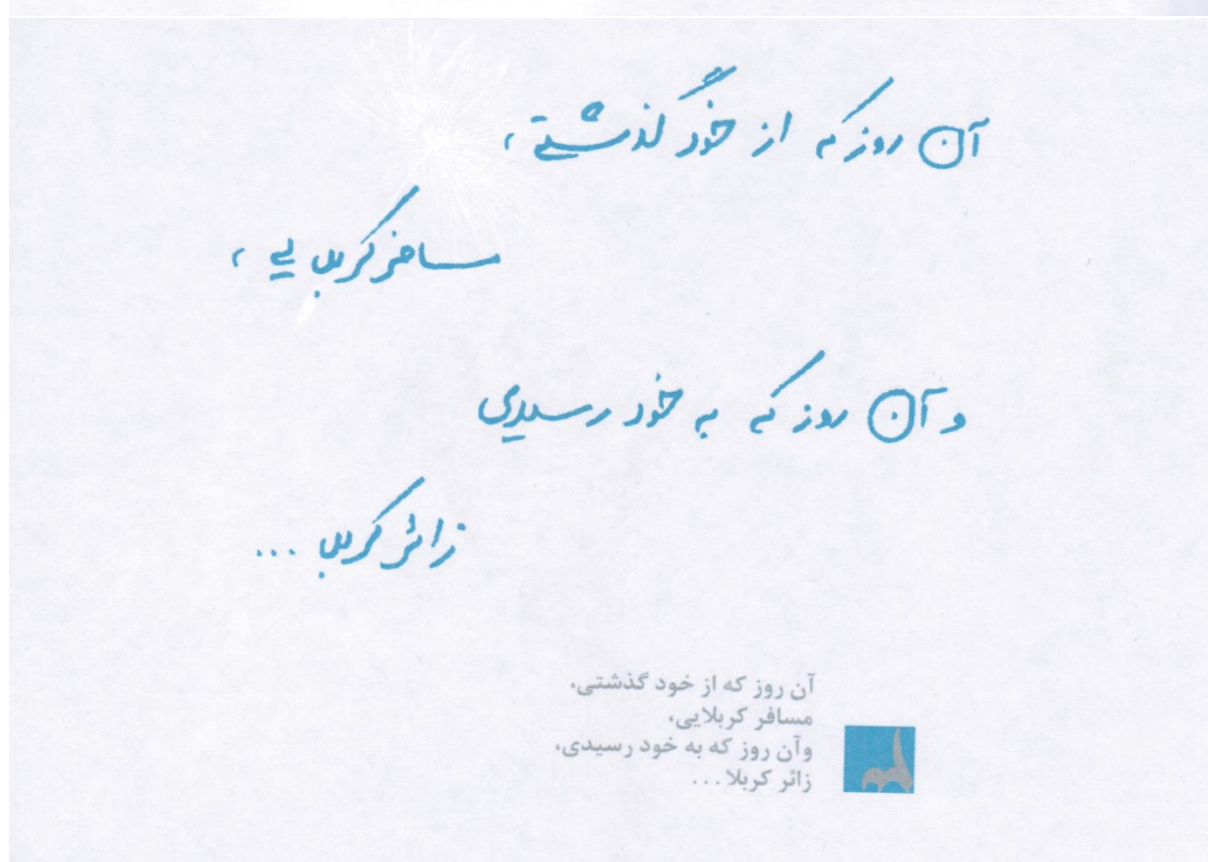 آن روز که از خود گذشتی،
مسافر کربلایی،
و آن روز که به خود رسیدی
زائر کربلا ...
آن روز که از خود گذشتی،
مسافر کربلایی،
وآن روز که به خود رسیدی،
زائر کربلا...